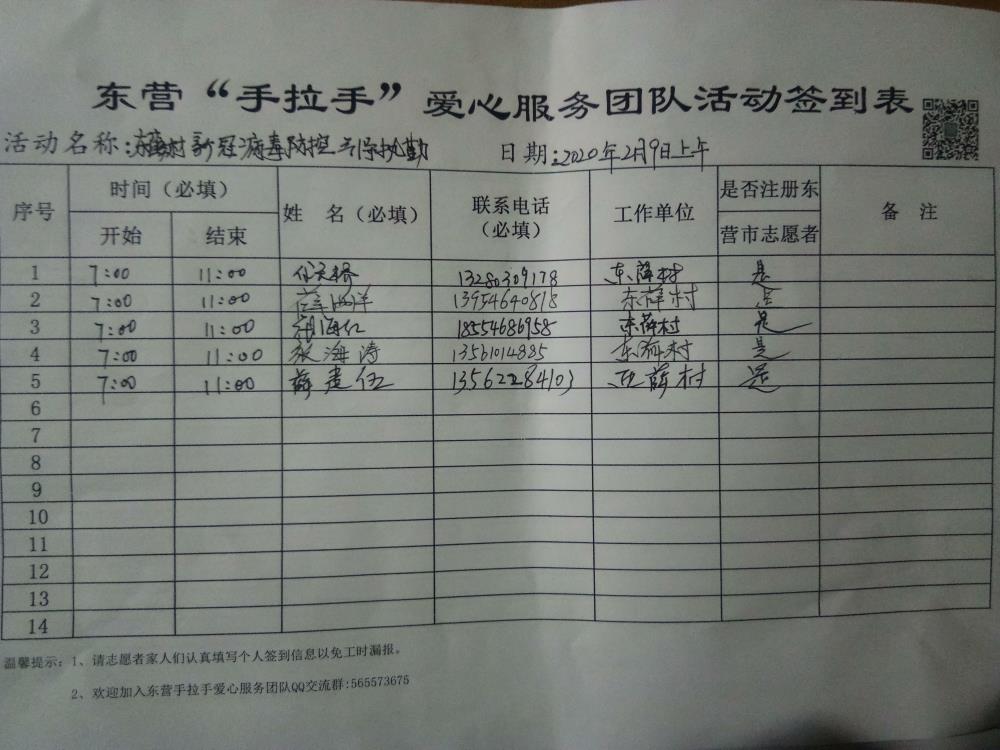 东营“手拉手”爱心服务团队活动签到表
活动名称:东薛村新冠病毒防控卡除执勤 日期:2020年2月9日上午
序号 时间（必填） 姓 名（必填） 联系电话（必填） 工作单位 是否注册东营市志愿者 备 注
开始 结束
1 7:00 11:00 13280309178 东薛村 是
2 7:00 11:00 薛海洋 13954640818 东薛村 是
3 7:00 11:00 海红 18554686958 东薛村 是
4 7:00 11:00 张海涛 13561014885 东薛村 是
5 7:00 11:00 薛建伍 13562284103 东薛村 是
6
7
8
9
10
11
12
13
14
温馨提示：1、请志愿者家人们认真填写个人签到信息以免工时漏报。
2、欢迎加入东营手拉手爱心服务团队QQ交流群:565573675